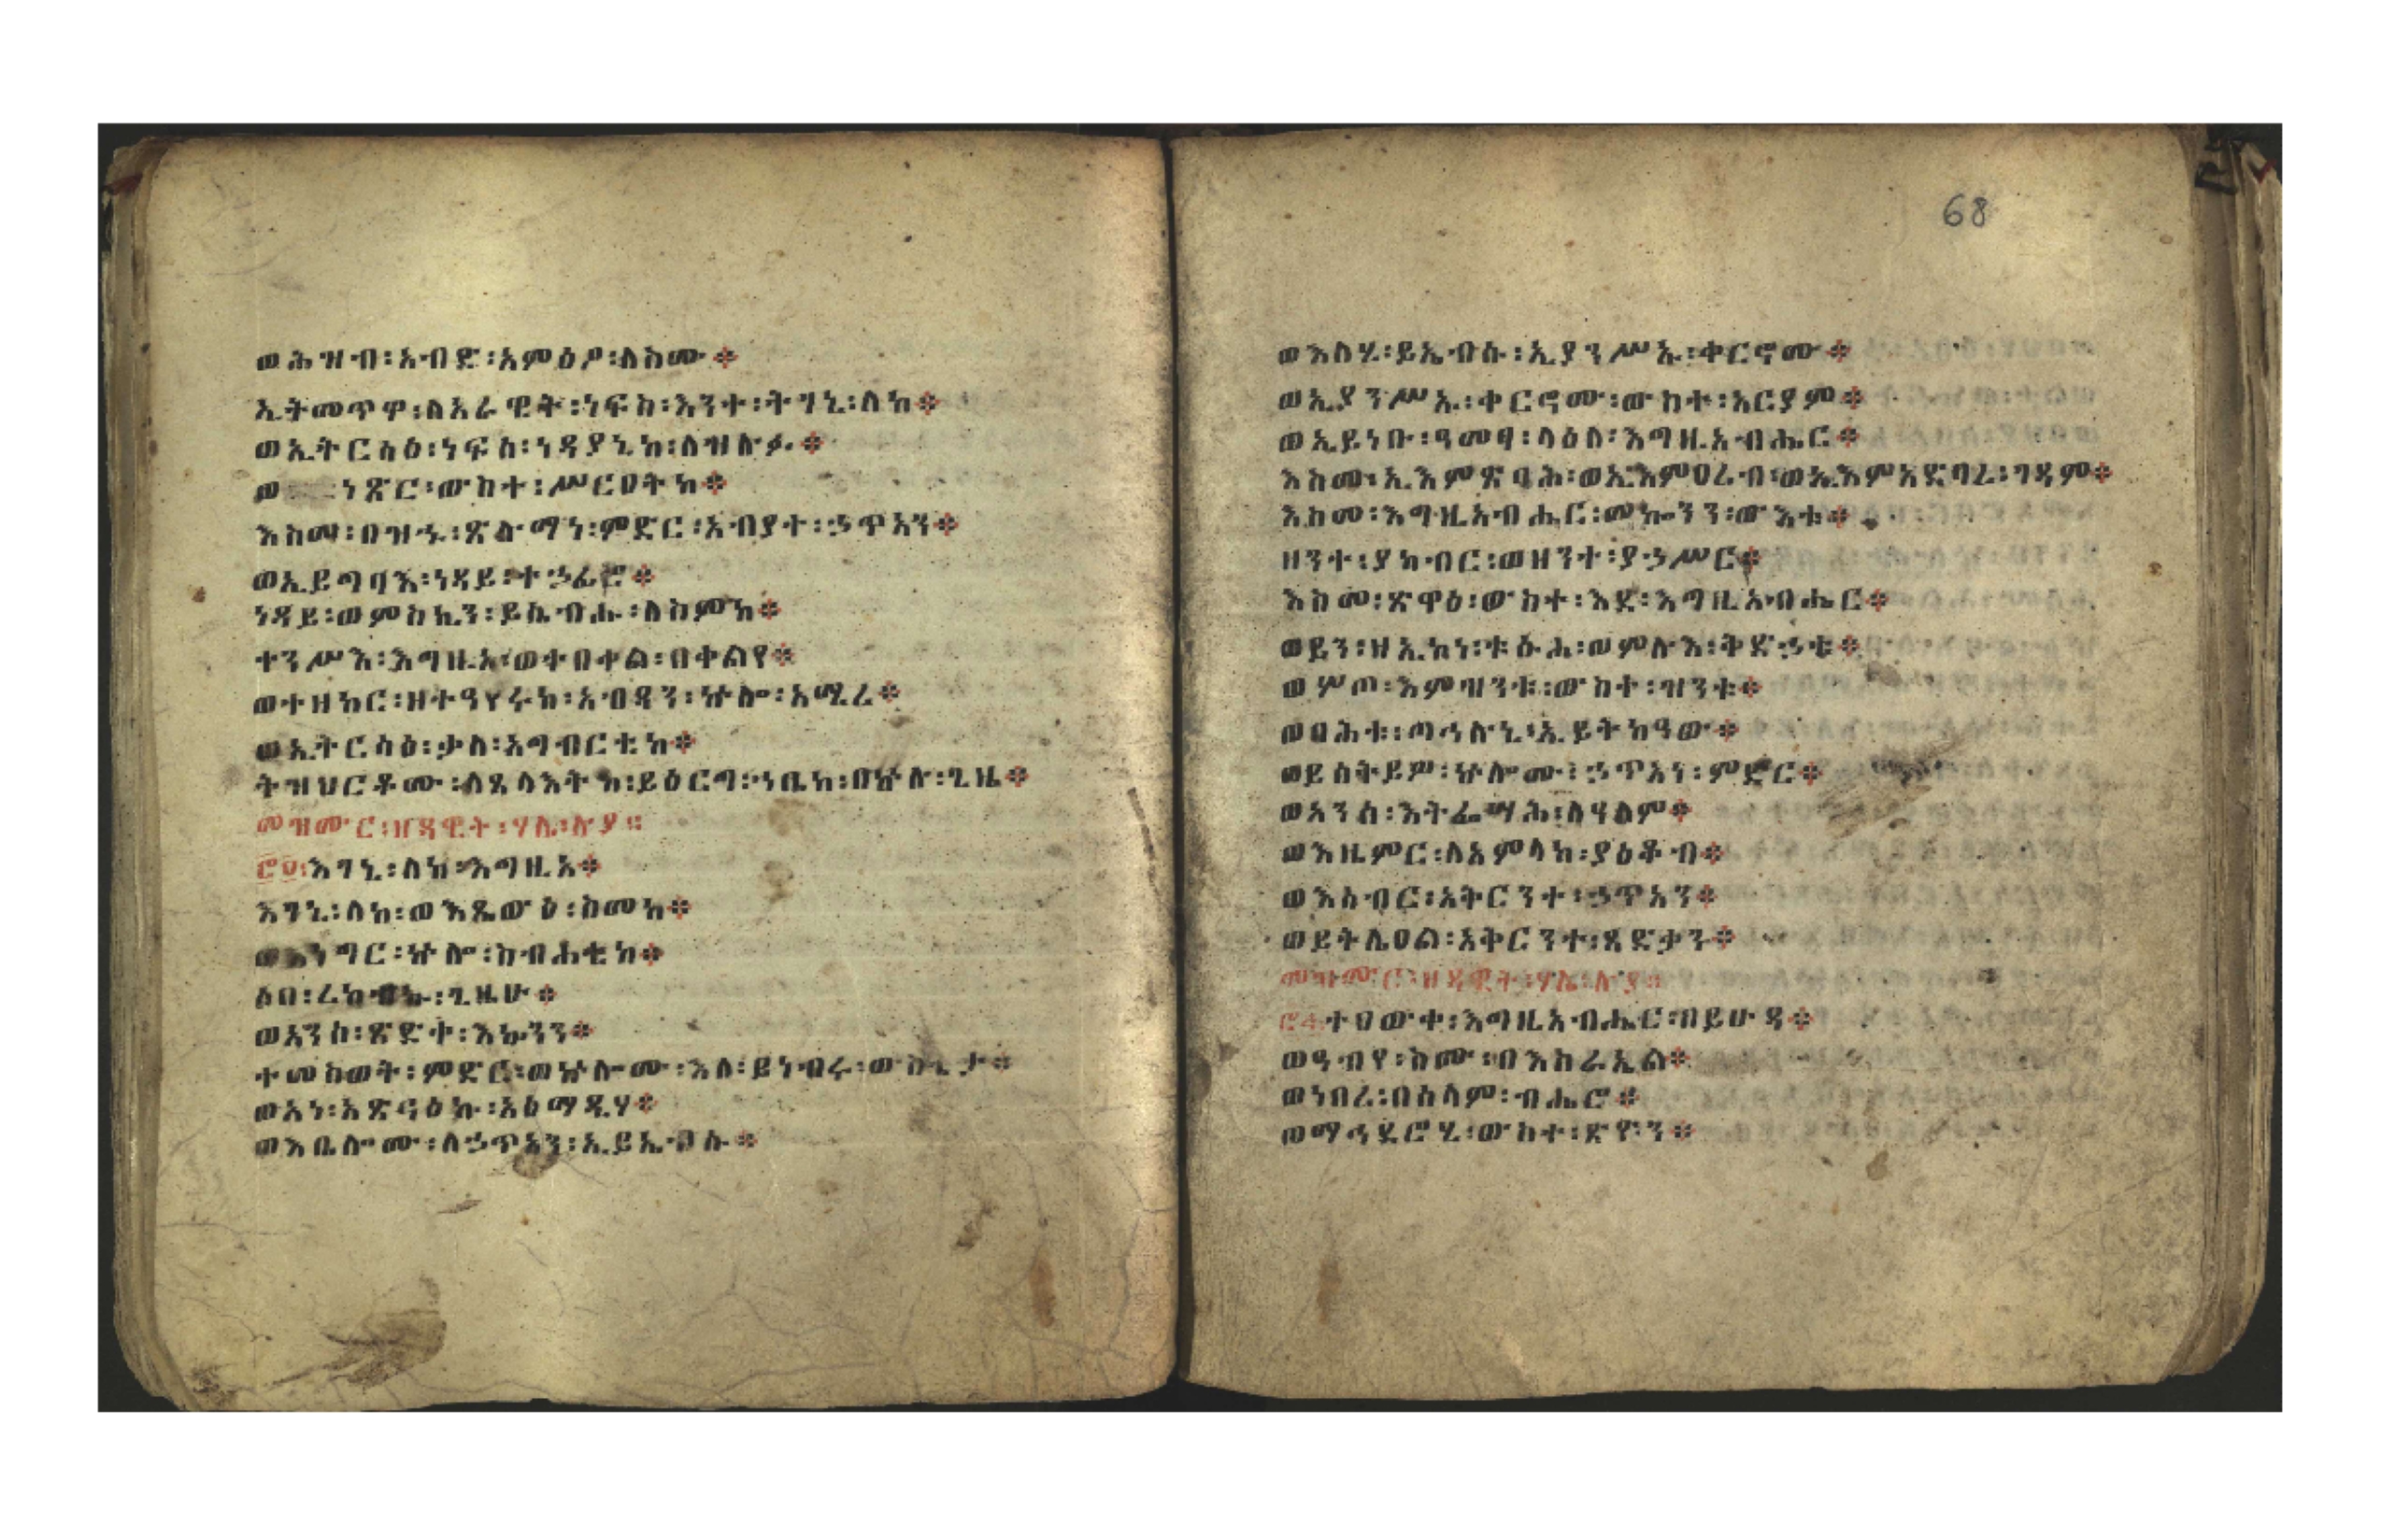 ወሕዝብ፡አብድ፡አምዕዖ፡ለስሙ፨
ኢትመጥዋ፡ለአራዊት፡ነፍስ፡እንተ፡ትገኒ፡ለከ፨
ወኢትርሳዕ፡ነፍሰ፡ነዳያኒከ፡ለዝሉፉ፨
ነጽር፡ውስተ፡ሥርዐትከ፨
እስመ፡በዝኁ፡ጽሉማነ፡ምድር፡አብያተ፡ኃጥአን፨
ወኢይግባእ፡ነዳይ፡ተኃፊሮ፨
ነዳይ፡ወምስኪን፡ይሴብሑ፡ለስምከ፨
ተንሥእ፡እግዚአ፡ወተበቀል፡በቀልየ፨
ወተዘከር፡ዘተዓየሩከ፡አብዳን፡ኵሎ፡አሚረ፨
ወኢትርሳዕ፡ቃለ፡አግብርቲከ፨
ትዝህርቶሙ፡ለጸላእትከ፡ይዕርግ፡ኀቤከ፡በኵሉ፡ጊዜ፨
መዝሙር፡ዘዳዊት፡ሃሌ፡ሉያ።
እገኒ፡ለከ፡እግዚአ፨
እገኒ፡ለከ፡ወእጼውዕ፡ስመከ፨
ኵሎ፡ስብሐቲከ፨
ሶበ፡ረከብኩ፡ጊዜሁ፨
ወአንሰ፡ጽድቀ፡እኴንን፨
ተመስወት፡ምድር፡ወኵሎሙ፡እለ፡ይነብሩ፡ውስቴታ፨
ወአነ፡አጽናዕኩ፡አዕማዲሃ፨
ወእቤሎሙ፡ለኃጥአን፡ኢይኤብሱ፨
68
ወእለሂ፡ይኤብሱ፡ኢያንሥኡ፡ቀርኖሙ፨
ወኢያንሥኡ፡ቀርኖሙ፡ውስተ፡አርያም፨
ወኢይነቡ፡ዓመፃ፡ላዕለ፡እግዚአብሔር፨
እስመ፡ኢእምጽባሕ፡ወኢእምዐረብ፡ወኢእምአድባረ፡ገዳም፨
እስመ፡እግዚአብሔር፡መኰንን፡ውእቱ፨
ዘንተ፡ያከብር፡ወዘንተ፡ያኃሥር፨
እስመ፡ጽዋዕ፡ውስተ፡እደ፡እግዚአብሔር፨
ወይን፡ዘኢከነ፡ቱሱሕ፡ወምሉእ፡ቅድኃቱ፨
ወሦጠ፡እምዝንቱ፡ውስተ፡ዝንቱ፨
ወባሕቱ፡ጣኅሉኒ፡ኢይትከዓው፨
ወይሰትይዎ፡ኵሎሙ፡ኃጥአነ፡ምድር፨
ወአንሰ፡እትፌሣሕ፡ለዓለም፨
ወእዜምር፡ለአምላከ፡ያዕቆብ፨
ወእሰብር፡አቅርንተ፡ኃጥአን፨
ወይትሌዐል፡አቅርንተ፡ጻድቃን፨
መዝሙር፡ዘዳዊት፡ሃሌ፡ሉያ።
ተዐውቀ፡እግዚአብሔር፡በይሁዳ፨
ወዓብየ፡ስሙ፡በእስራኤል፨
ወነበረ፡በሰላም፡ብሔሮ፨
ወማኅደሮሂ፡ውስተ፡ጽዮን፨